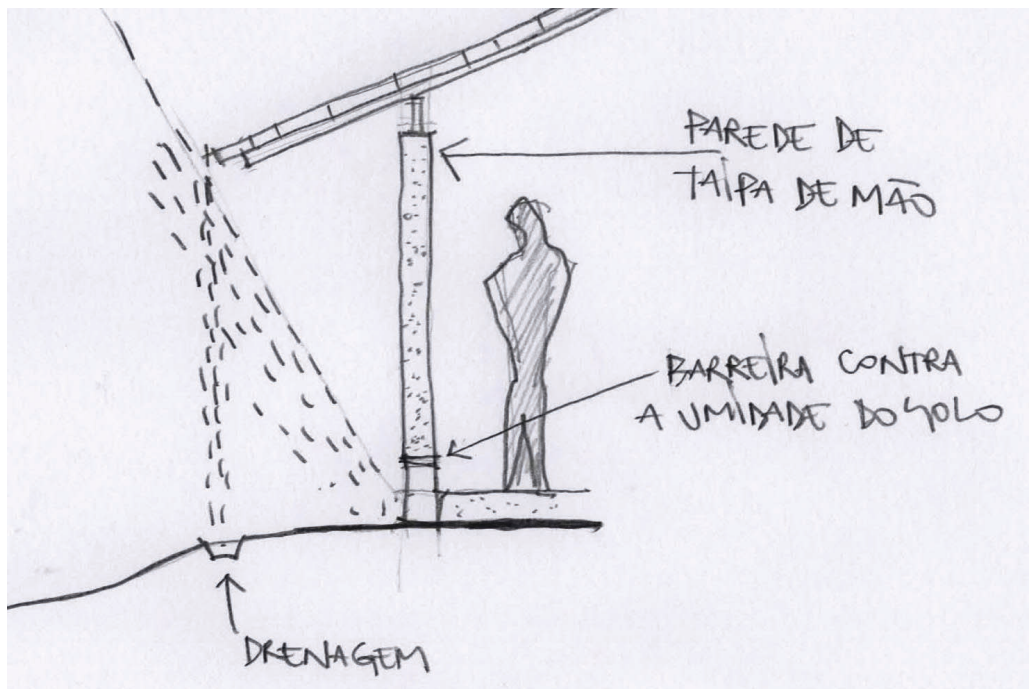 PAREDE DE
TAIPA DE MÃO
BARREIRA CONTRA
A UMIDADE DO SOLO
DRENAGEM